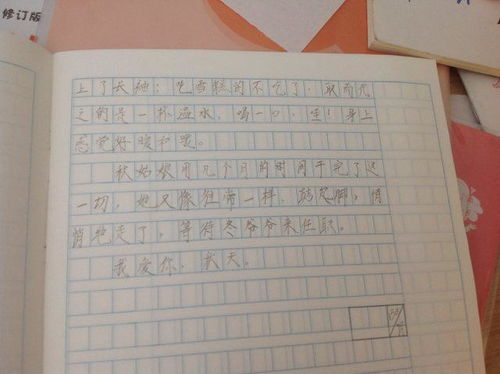 修订版
上了长袖；吃雪糕的不吃了，取而代
之的是一杯温水，喝一口，哇！身上
感觉好暖和呢。
秋姑娘用几个月的时间干完了这
一切，她又像往常一样，踮起脚，悄
悄地走了，等待冬爷爷来任职。
我爱你，秋天。